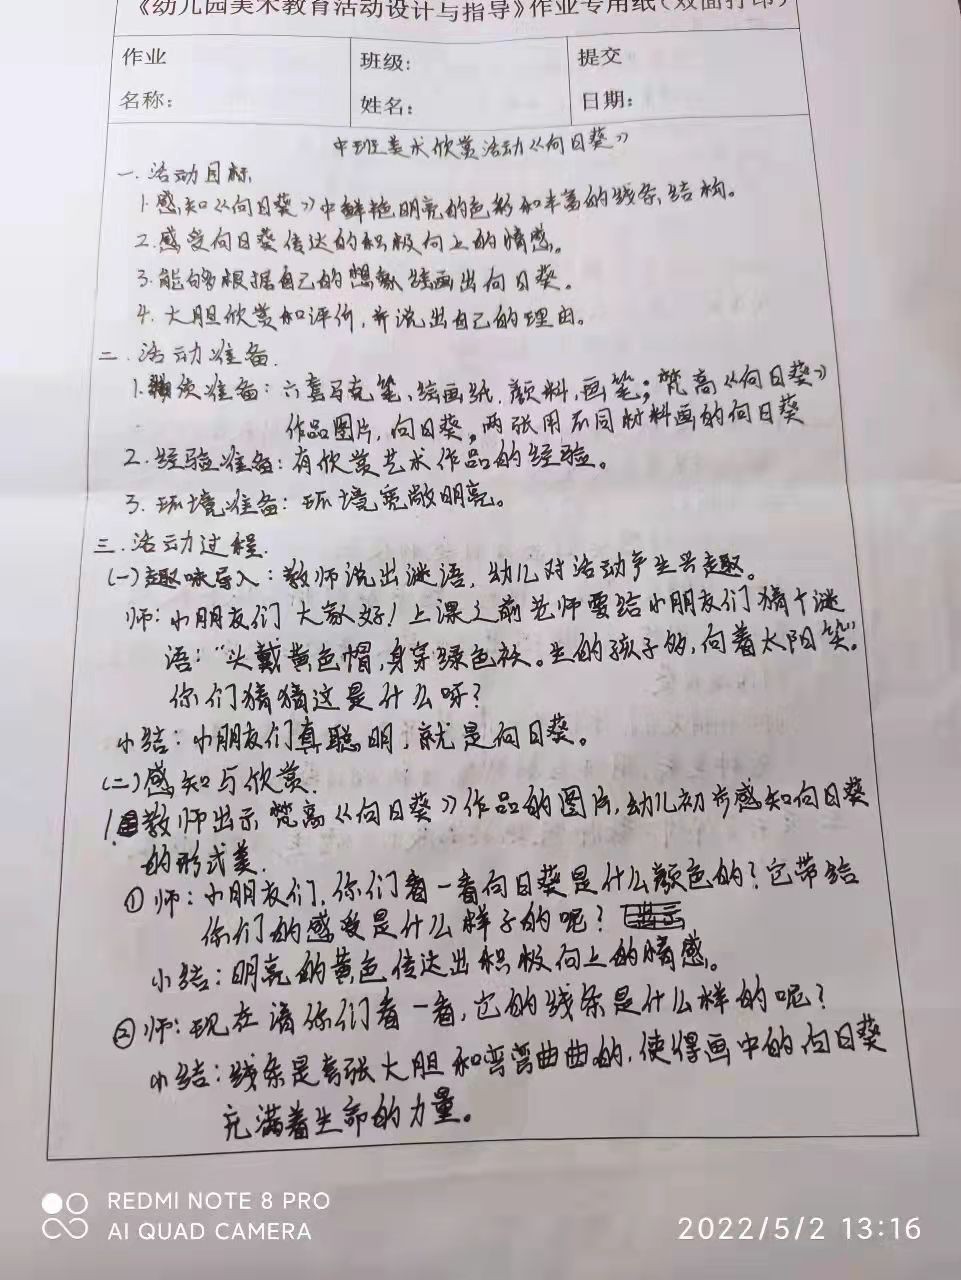 《幼儿园美术教育活动设计与指导》作业专用纸（双面打印）
作业 班级： 提交
名称： 姓名： 日期：
中班美术欣赏活动《向日葵》
一.活动目标
1.感知《向日葵》中鲜艳明亮的色彩和丰富的线条、结构。
2.感受向日葵传达的积极向上的情感。
3.能够根据自己的想象绘画出向日葵。
4.大胆欣赏和评价,并说出自己的理由。
二.活动准备.
1.准备：六套马克笔、绘画纸、颜料、画笔；梵高《向日葵》
作品图片,向日葵,两张用不同材料画的向日葵
2.经验准备：有欣赏艺术作品的经验。
3.环境准备：环境宽敞明亮。
三.活动过程.
(一)趣味导入：教师说出谜语,幼儿对活动产生兴趣。
师：小朋友们大家好！上课之前老师要给小朋友们猜个谜
语：“头戴黄色帽,身穿绿色袄。生的孩子多,向着太阳笑”。
你们猜猜这是什么呀？
小结：小朋友们真聪明,就是向日葵。
(二)感知与欣赏.
1.教师出示梵高《向日葵》作品的图片,幼儿初步感知向日葵
的形式美.
①师：小朋友们,你们看一看向日葵是什么颜色的？它带给
你们的感受是什么样子的呢？
小结：明亮的黄色传达出积极向上的情感。
②师：现在请你们看一看,它的线条是什么样的呢？
小结：线条是夸张大胆和弯弯曲曲的,使得画中的向日葵
充满着生命的力量。
REDMI NOTE 8 PRO
AI QUAD CAMERA
2022/5/2 13:16